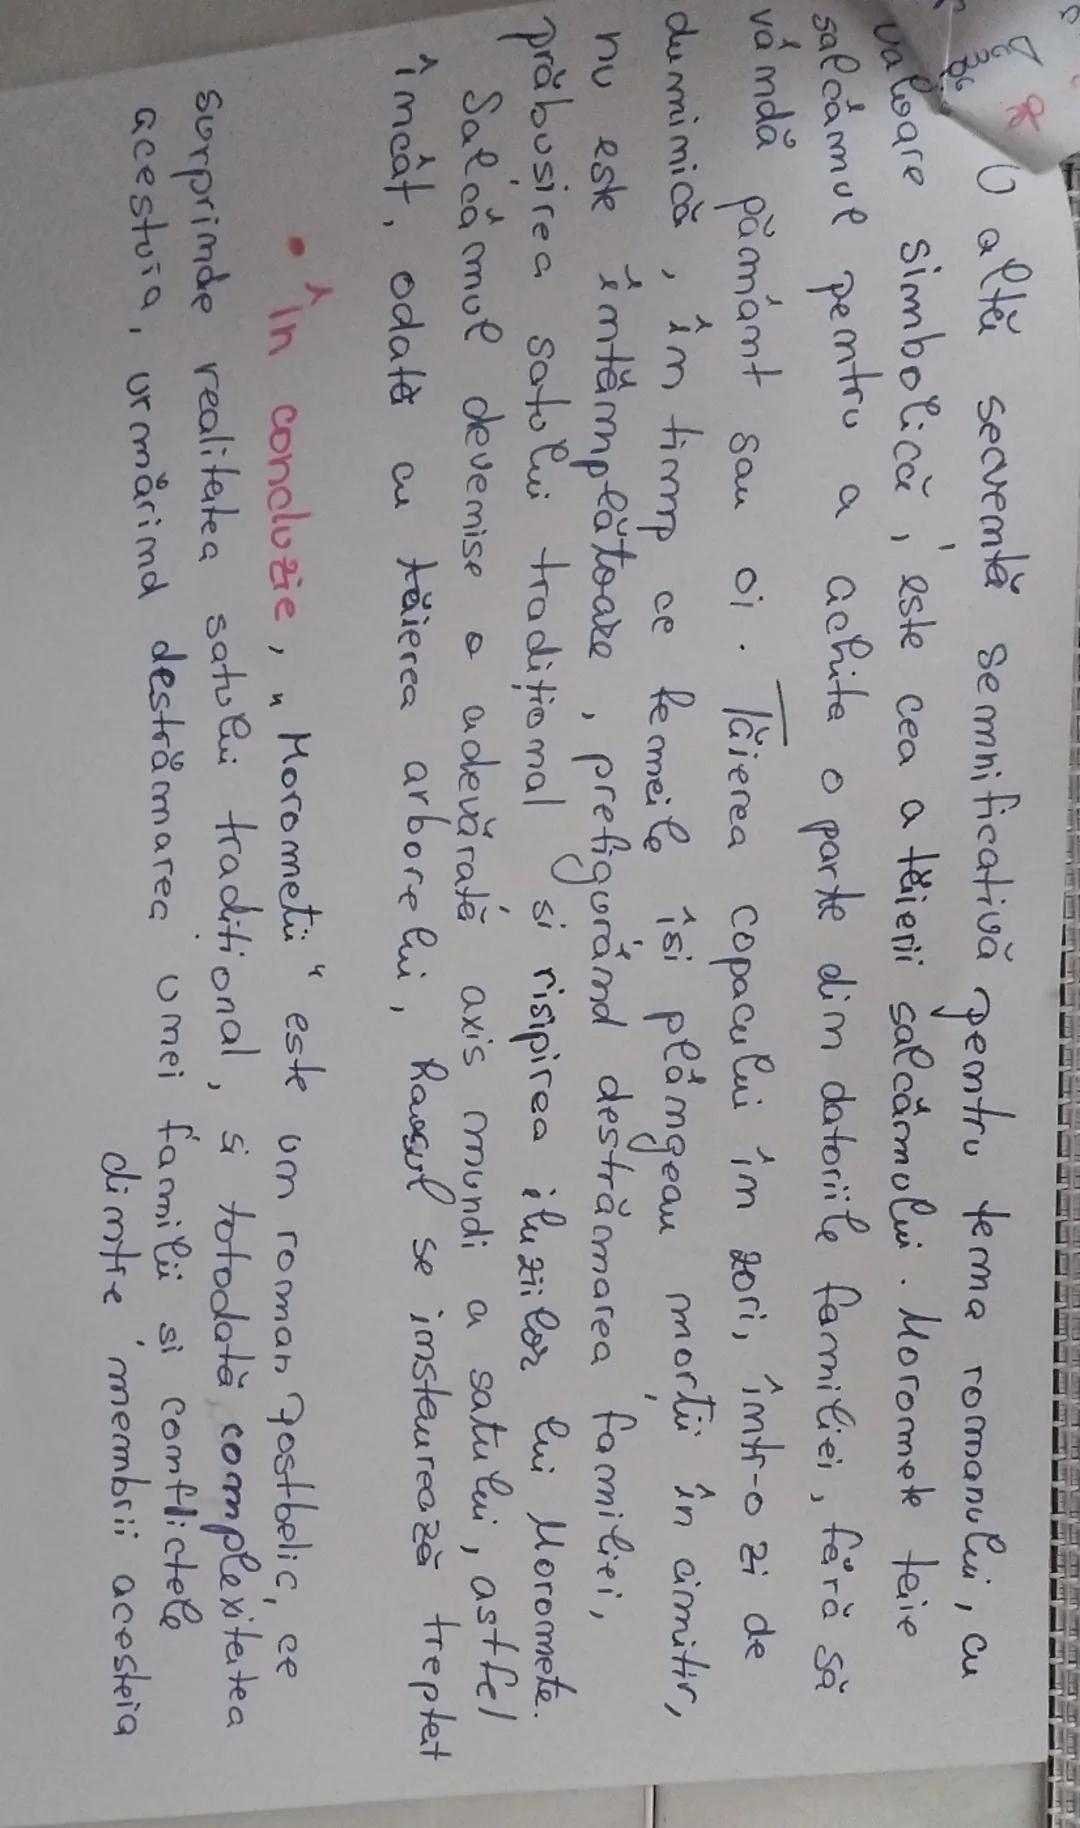 O altă secvență semnificativă pentru tema romanului, cu
valoare simbolică, este cea a tăierii salcâmului. Moromete taie
salcâmul pentru a achita o parte din datoriile familiei, fără să
vândă pământ sau oi. Tăierea copacului în zori, într-o zi de
duminică, în timp ce femeile își plângeau morții în cimitir,
nu este întâmplătoare, prefigurând destrămarea familiei,
prăbușirea satului tradițional și risipirea iluziilor lui Moromete.
Salcâmul devenise o adevărată axis mundi a satului, astfel
încât, odată cu tăierea arborelui, haosul se instaurează treptat
• În concluzie, „Moromeții" este un roman Postbelic, ce
surprinde realitatea satului tradițional, și totodată complexitatea
acestuia, urmărind destrămarea unei familii și conflictele
dintre membrii acesteia